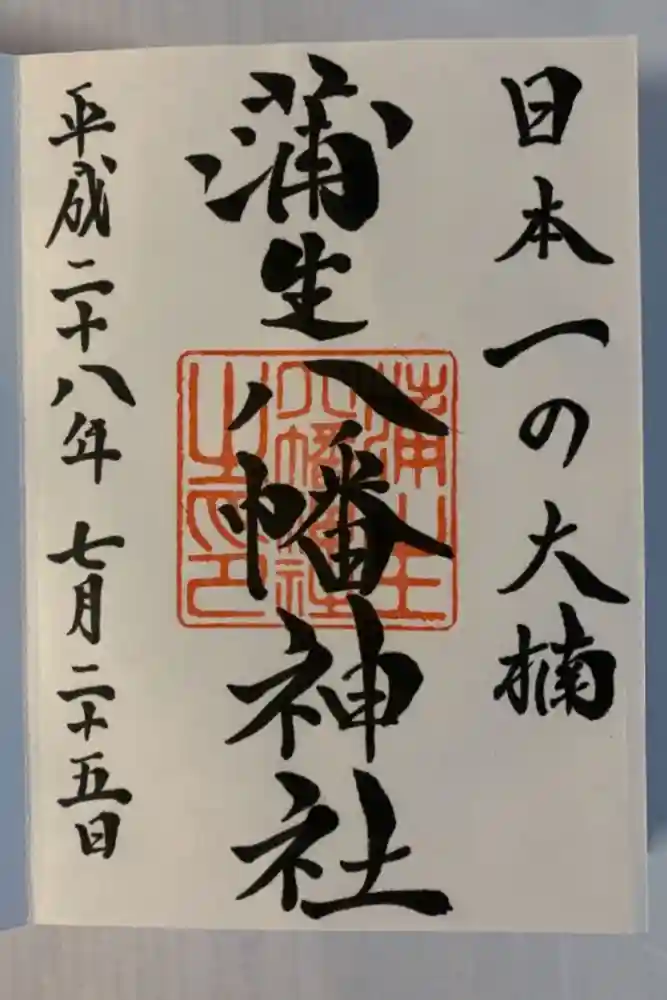 日本一の大楠
蒲生八幡神社
平成二十八年 七月二十五日
蒲生
八幡神社
之印